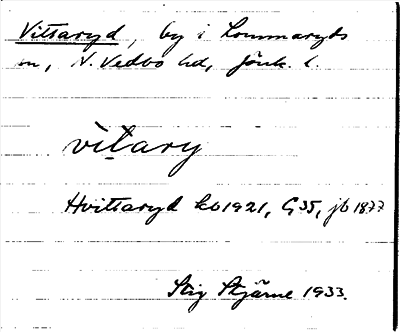 Vittaryd, by i Lommaryds
sn, N. Vedbo hd, Jönk. l.
vìtary
Hvittaryd kb 1921, G 35, jb 1877
Stig Stjärne 1933.